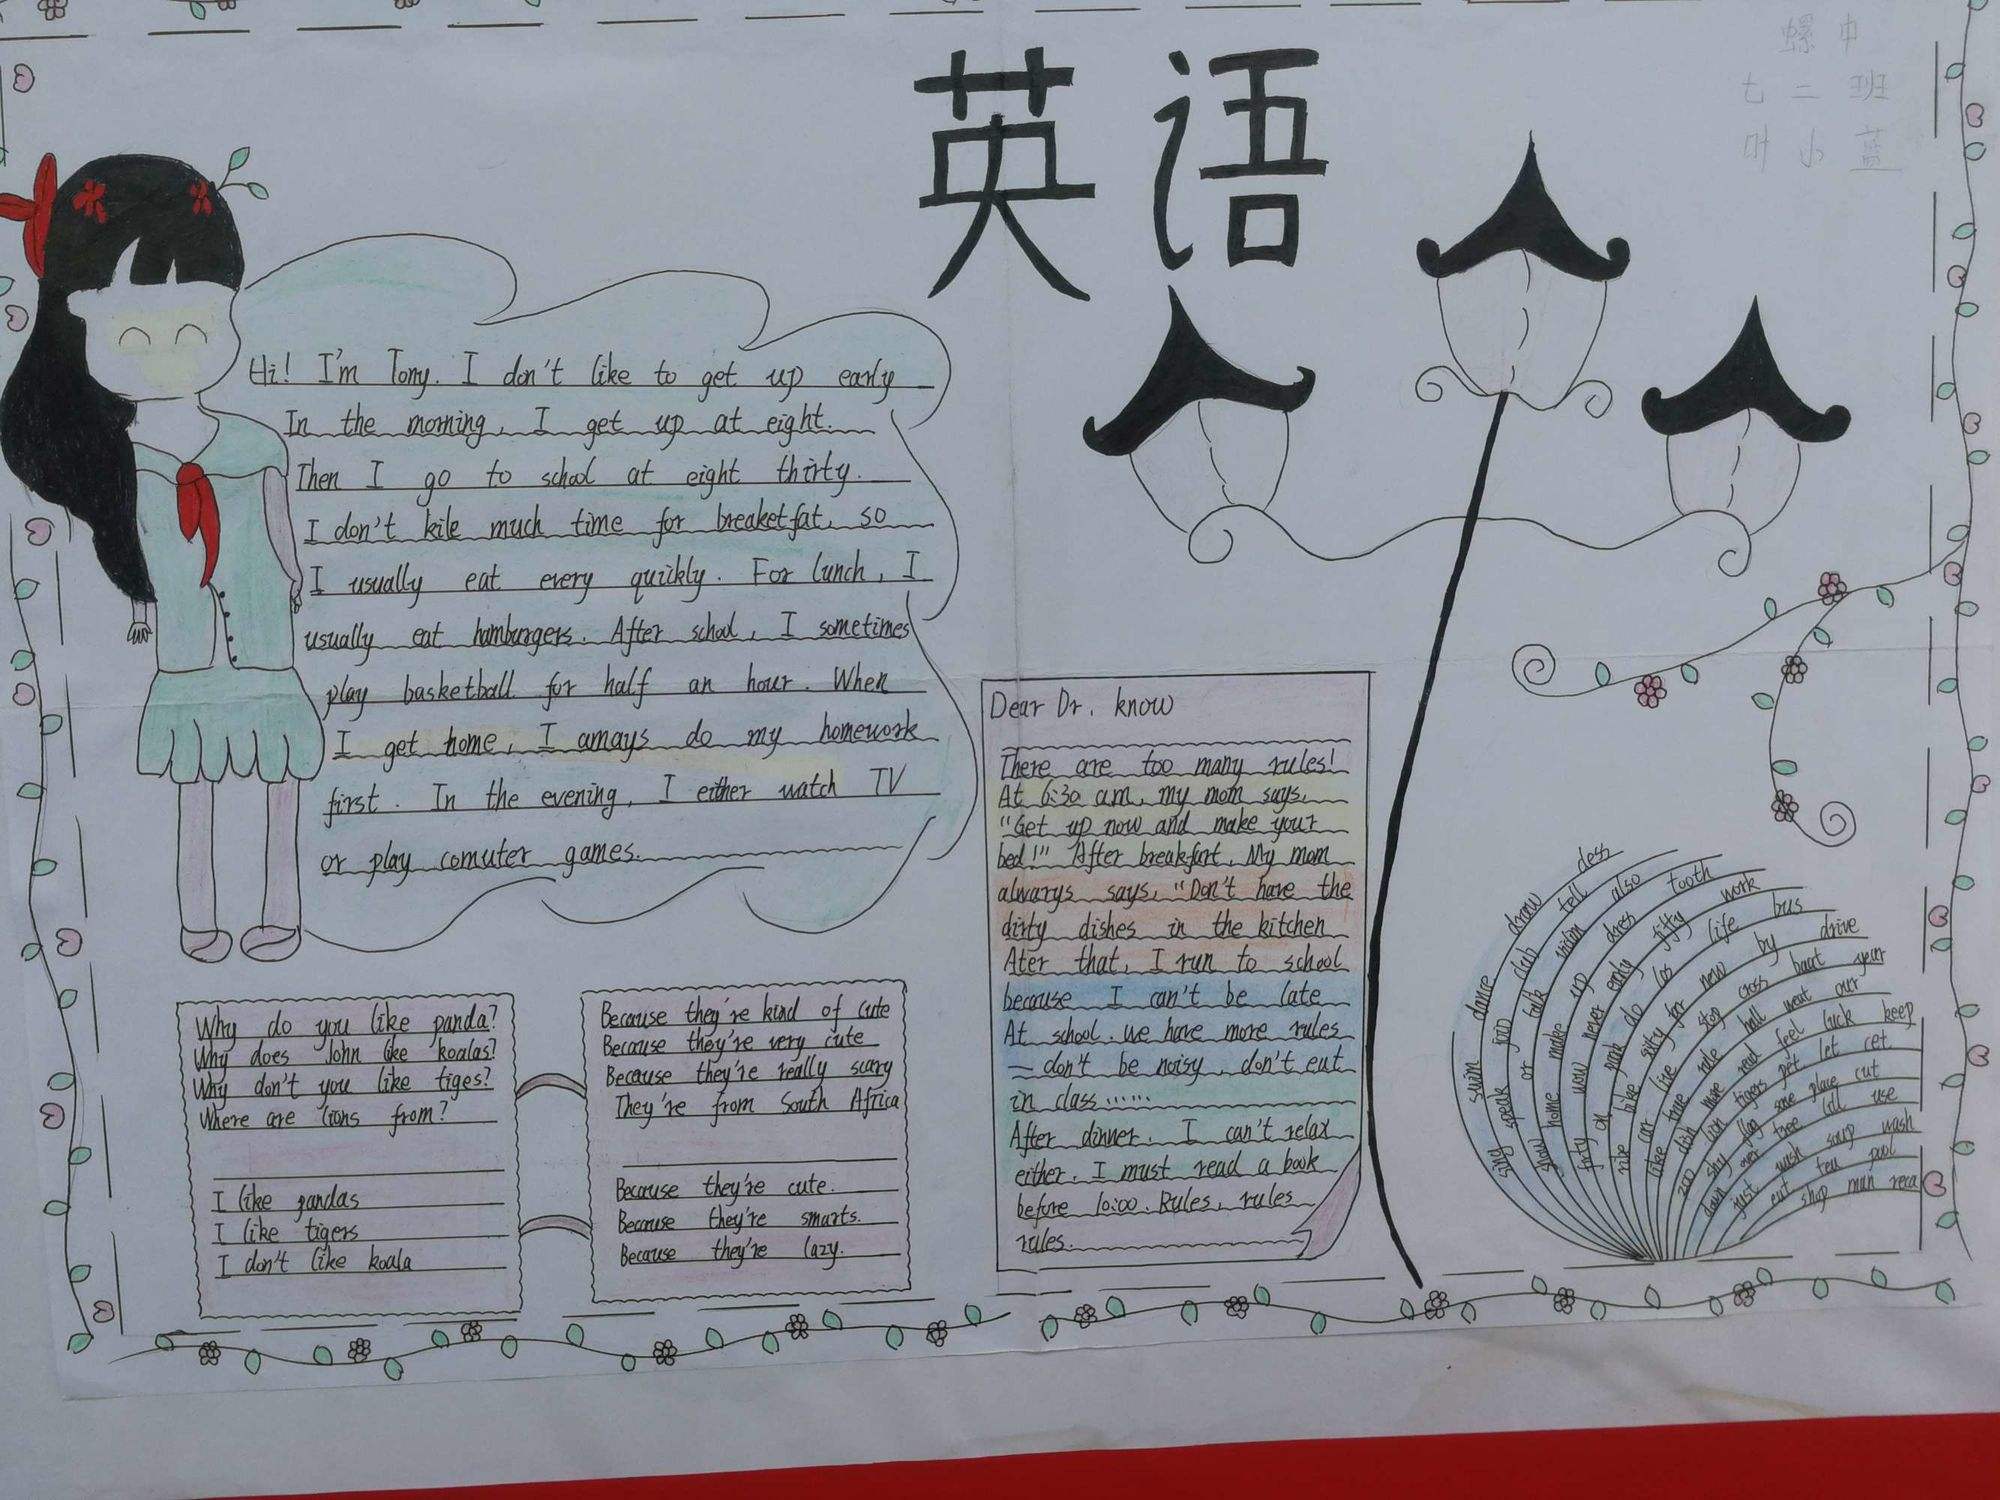 英语
螺中
七二班
叶小蓝
Hi! I'm Tony. I don't like to get up early
In the morning, I get up at eight.
Then I go to school at eight thirty.
I don't kile much time for breaketfat, so
I usually eat every quickly. For lunch, I
usually eat hamburgers. After school, I sometimes
play basketball for half an hour. When
I get home, I amays do my homework
first. In the evening, I either watch TV
or play comuter games.
Why do you like panda?
Why does John like koalas?
Why don't you like tiges?
Where are lions from?
I like pandas
I like tigers
I don't like koala
Because they're kind of cute
Because they're very cute
Because they're really scary
They're from South Africa
Because they're cute.
Because they're smarts.
Because they're lazy.
Dear Dr. know
There are too many rules!
At 6:30 am, my mom says,
"Get up now and make your
bed!" After breakfart, My mom
alwarys says, "Don't have the
dirty dishes in the kitchen
Ater that, I run to school
because I can't be late
At school. we have more rules
— don't be noisy, don't eat
in class ......
After dinner. I can't relax
either. I must read a book
before 10:00. Rules, rules
rules.
swim dance draw dess
sing speak join club tell also
slow home make up dress fifty work
life bus
new by drive
stop cross boat year
feel luck keep
tigers pet let
some place cut
flag use
over tree
wash soup wash
just tea pool
eat shop man